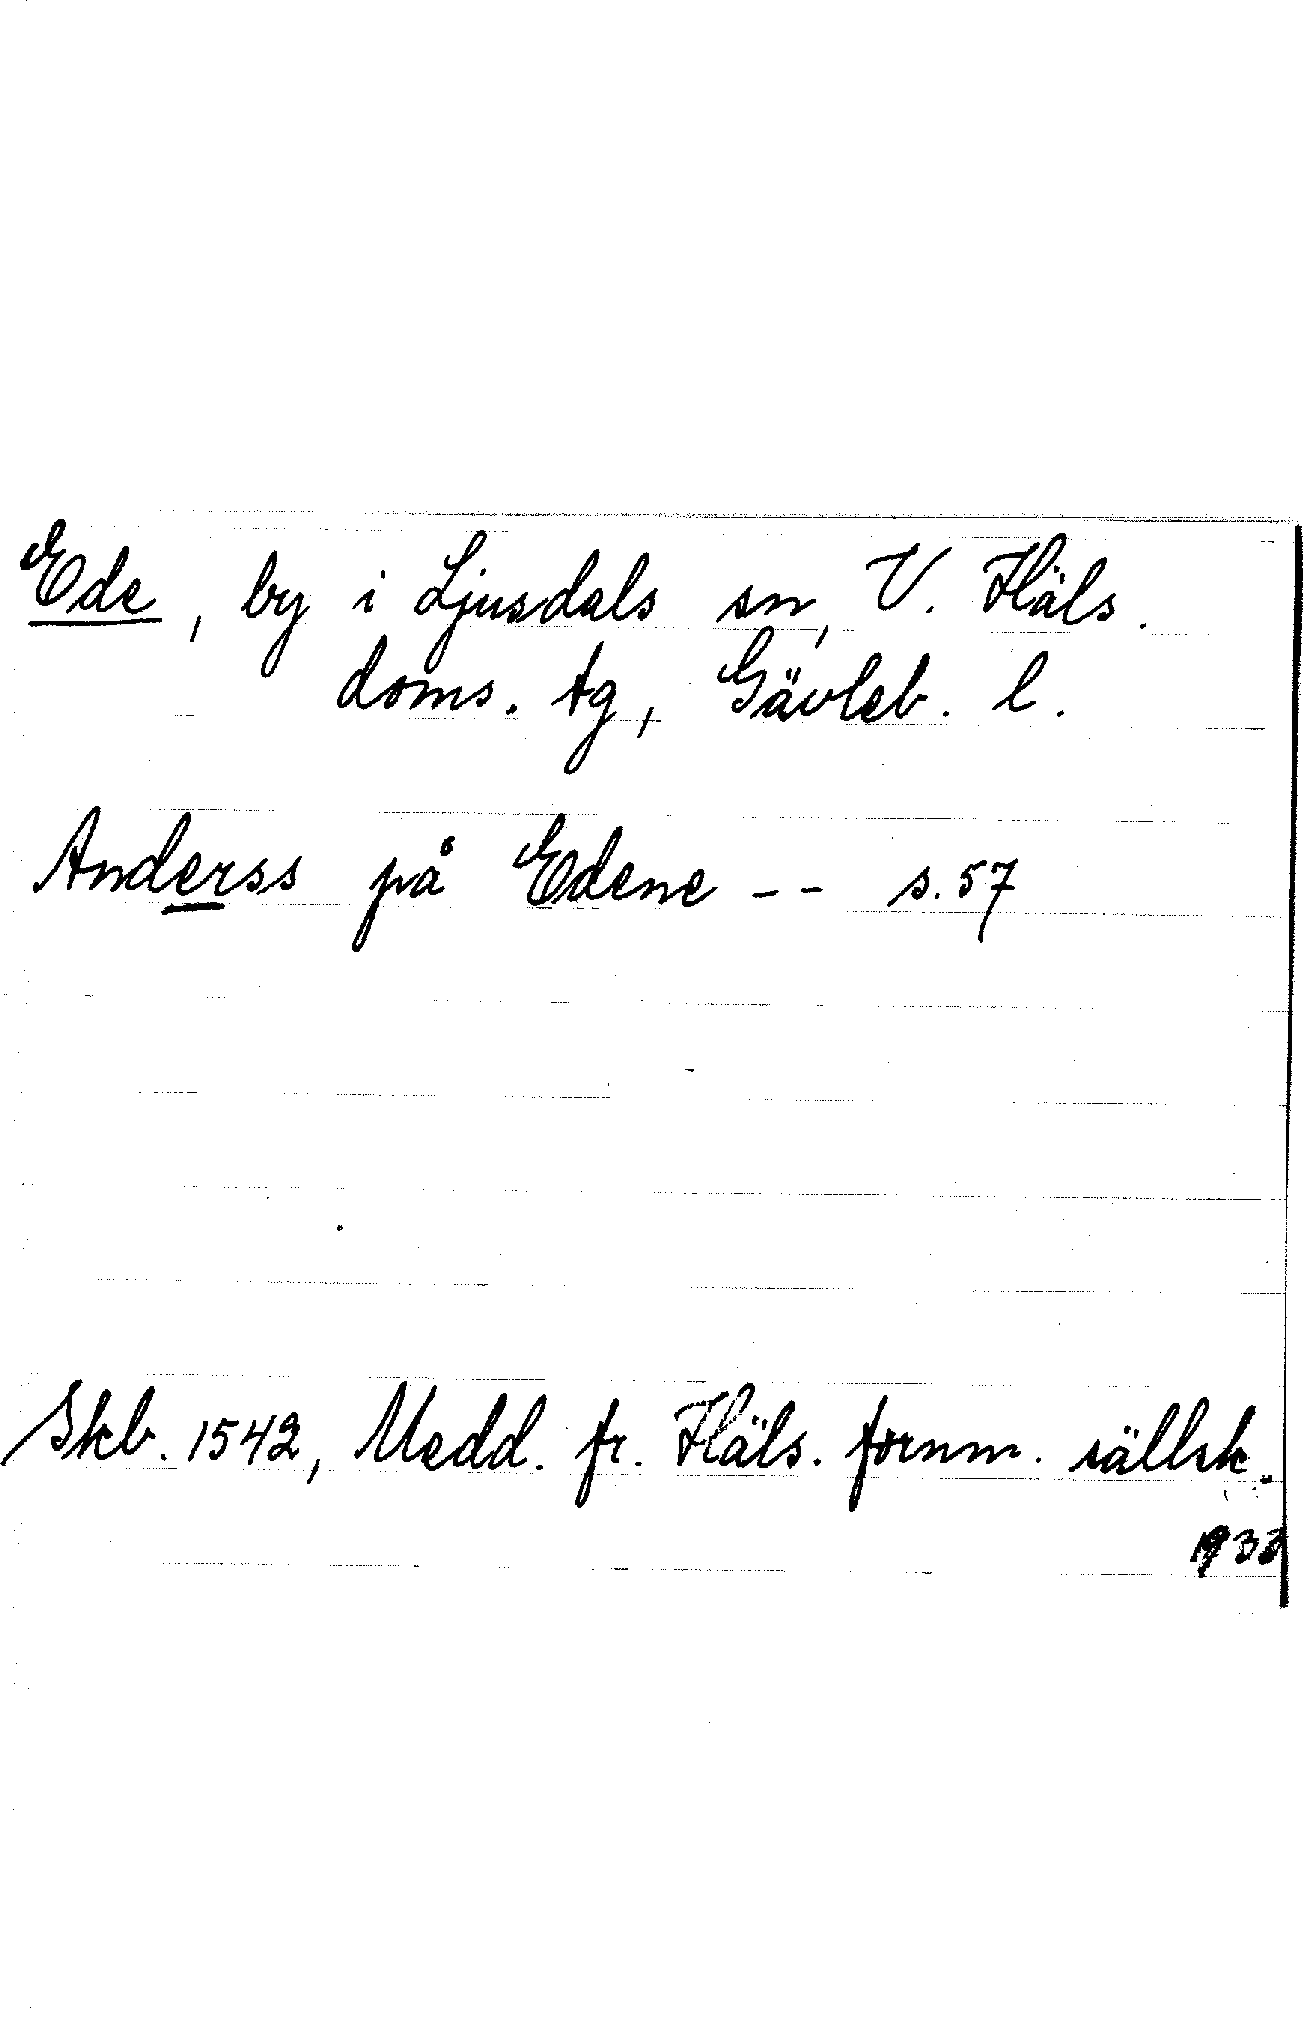 Ede, by i Ljusdals sn, V. Häls.
doms. tg, Gävleb. l.
Anderss på Edene -- s. 57
Skb. 1542, Medd. fr. Häls. fornm. sällsk.
1933